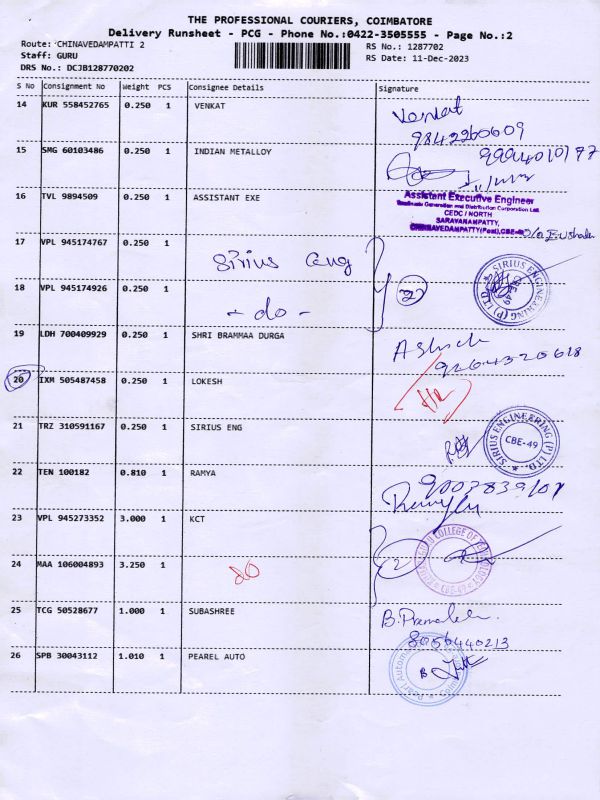 THE PROFESSIONAL COURIERS, COIMBATORE
Delivery Runsheet - PCG - Phone No.:0422-3505555 - Page No.:2
Route: CHINAVEDAMPATTI 2
RS No.: 1287702
Staff: GURU
RS Date: 11-Dec-2023
DRS No.: DCJB128770202
S No Consignment No Weight PCS Consignee Details Signature
14 KUR 558452765 0.250 1 VENKAT Venkat
9842260609
15 SMG 60103486 0.250 1 INDIAN METALLOY 9994010177
16 TVL 9894509 0.250 1 ASSISTANT EXE Assistant Executive Engineer
Tamilnadu Generation and Distribution Corporation Ltd.
CEDC / NORTH
SARAVANAMPATTY,
CHINAVEDAMPATTY(Post),CBE-49
17 VPL 945174767 0.250 1 Sirius eng
SIRIUS ENGINEERING (P) LTD. CBE-49
18 VPL 945174926 0.250 1 - do - 2
19 LDH 700409929 0.250 1 SHRI BRAMMAA DURGA Ashok
9264320618
20 IXM 505487458 0.250 1 LOKESH
21 TRZ 310591167 0.250 1 SIRIUS ENG SIRIUS ENGINEERING (P) LTD. CBE-49
22 TEN 100182 0.810 1 RAMYA
23 VPL 945273352 3.000 1 KCT 2
COLLEGE OF CBE-49
24 MAA 106004893 3.250 1 do
25 TCG 50528677 1.000 1 SUBASHREE
8056440213
26 SPB 30043112 1.010 1 PEAREL AUTO Pearl Auto
B